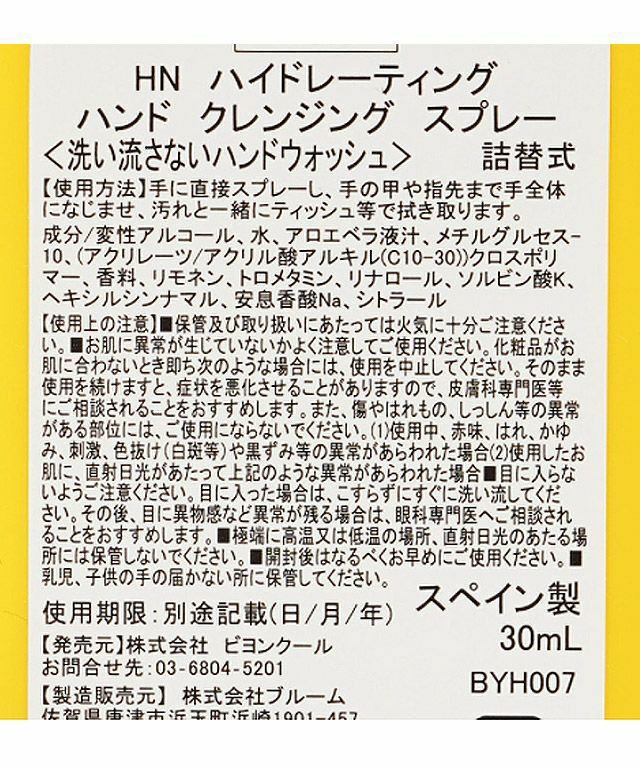 HN ハイドレーティング
ハンド クレンジング スプレー
＜洗い流さないハンドウォッシュ＞ 詰替式
【使用方法】手に直接スプレーし、手の甲や指先まで手全体
になじませ、汚れと一緒にティッシュ等で拭き取ります。
成分/変性アルコール、水、アロエベラ液汁、メチルグルセス-
10、(アクリレーツ/アクリル酸アルキル(C10-30))クロスポリ
マー、香料、リモネン、トロメタミン、リナロール、ソルビン酸K、
ヘキシルシンナマル、安息香酸Na、シトラール
【使用上の注意】■保管及び取り扱いにあたっては火気に十分ご注意くださ
い。■お肌に異常が生じていないかよく注意してご使用ください。化粧品がお
肌に合わないとき即ち次のような場合には、使用を中止してください。そのまま
使用を続けますと、症状を悪化させることがありますので、皮膚科専門医等
にご相談されることをおすすめします。また、傷やはれもの、しっしん等の異常
がある部位には、ご使用にならないでください。(1)使用中、赤味、はれ、かゆ
み、刺激、色抜け(白斑等)や黒ずみ等の異常があらわれた場合(2)使用したお
肌に、直射日光があたって上記のような異常があらわれた場合■目に入らな
いようご注意ください。目に入った場合は、こすらずにすぐに洗い流してくだ
さい。その後、目に異物感など異常が残る場合は、眼科専門医へご相談され
ることをおすすめします。■極端に高温又は低温の場所、直射日光のあたる場
所には保管しないでください。■開封後はなるべくお早めにご使用ください。■
乳児、子供の手の届かない所に保管してください。
使用期限:別途記載(日/月/年) スペイン製
【発売元】株式会社 ビヨンクール 30mL
お問合せ先:03-6804-5201
【製造販売元】 株式会社ブルーム BYH007
佐賀県唐津市浜玉町浜崎1901-457